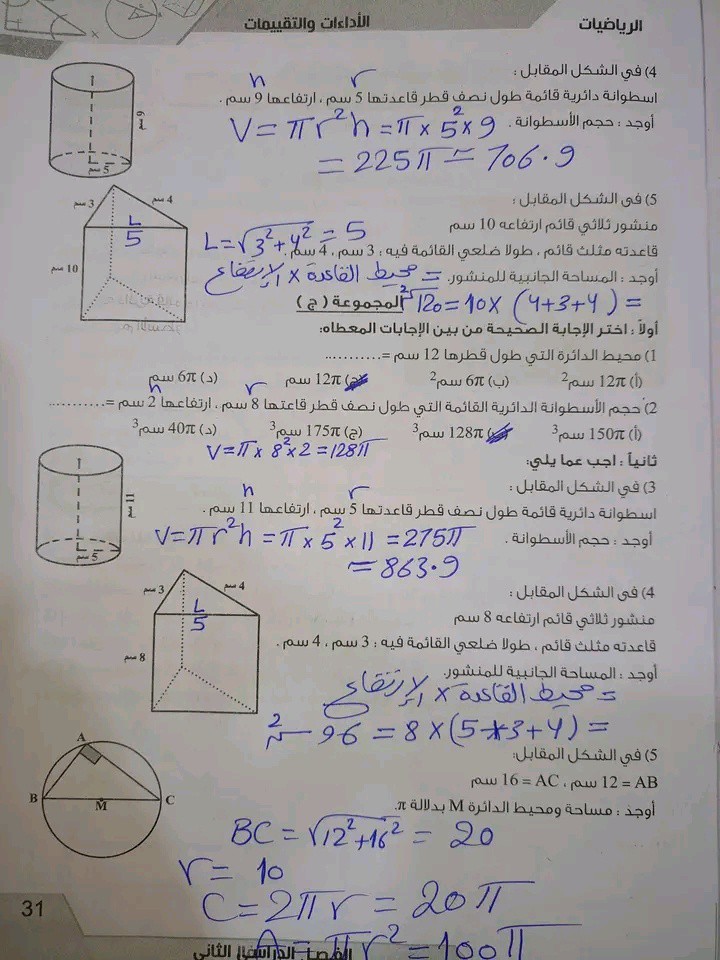 الرياضيات
الأداءات والتقييمات
4) في الشكل المقابل :
h r
اسطوانة دائرية قائمة طول نصف قطر قاعدتها 5 سم ، ارتفاعها 9 سم .
أوجد : حجم الأسطوانة .
V = πr²h = π × 5² × 9
= 225π ≃ 706.9
9 سم
5 سم
5) في الشكل المقابل :
منشور ثلاثي قائم ارتفاعه 10 سم
L = √3²+4² = 5
قاعدته مثلث قائم ، طولا ضلعي القائمة فيه : 3 سم ، 4 سم .
أوجد : المساحة الجانبية للمنشور.
= محيط القاعدة × الإرتفاع
= (4+3+4) ×10=120 سم²
3 سم
4 سم
L
5
10 سم
المجموعة ( ج )
أولاً : اختر الإجابة الصحيحة من بين الإجابات المعطاه:
1) محيط الدائرة التي طول قطرها 12 سم = ..........
(أ) 12π سم²
(ب) 6π سم²
(ج) 12π سم
(د) 6π سم
h r
2) حجم الأسطوانة الدائرية القائمة التي طول نصف قطر قاعتها 8 سم ، ارتفاعها 2 سم = ..........
(أ) 150π سم³
(ب) 128π سم³
(ج) 175π سم³
(د) 40π سم³
V = π × 8² × 2 = 128π
ثانياً : اجب عما يلي:
3) في الشكل المقابل :
h r
اسطوانة دائرية قائمة طول نصف قطر قاعدتها 5 سم ، ارتفاعها 11 سم .
أوجد : حجم الأسطوانة .
V = πr²h = π × 5² × 11 = 275π
= 863.9
11 سم
5 سم
4) في الشكل المقابل :
منشور ثلاثي قائم ارتفاعه 8 سم
قاعدته مثلث قائم ، طولا ضلعي القائمة فيه : 3 سم ، 4 سم .
أوجد : المساحة الجانبية للمنشور.
= محيط القاعدة × الإرتفاع
= (5+3+4) × 8 = 96 سم²
3 سم
4 سم
L
5
8 سم
5) في الشكل المقابل:
AB = 12 سم ، AC = 16 سم
أوجد : مساحة ومحيط الدائرة M بدلالة π.
A
B
M
C
BC = √12²+16² = 20
r = 10
C = 2πr = 20π
A = πr² = 100π
31
الفصل الدراسي الثاني